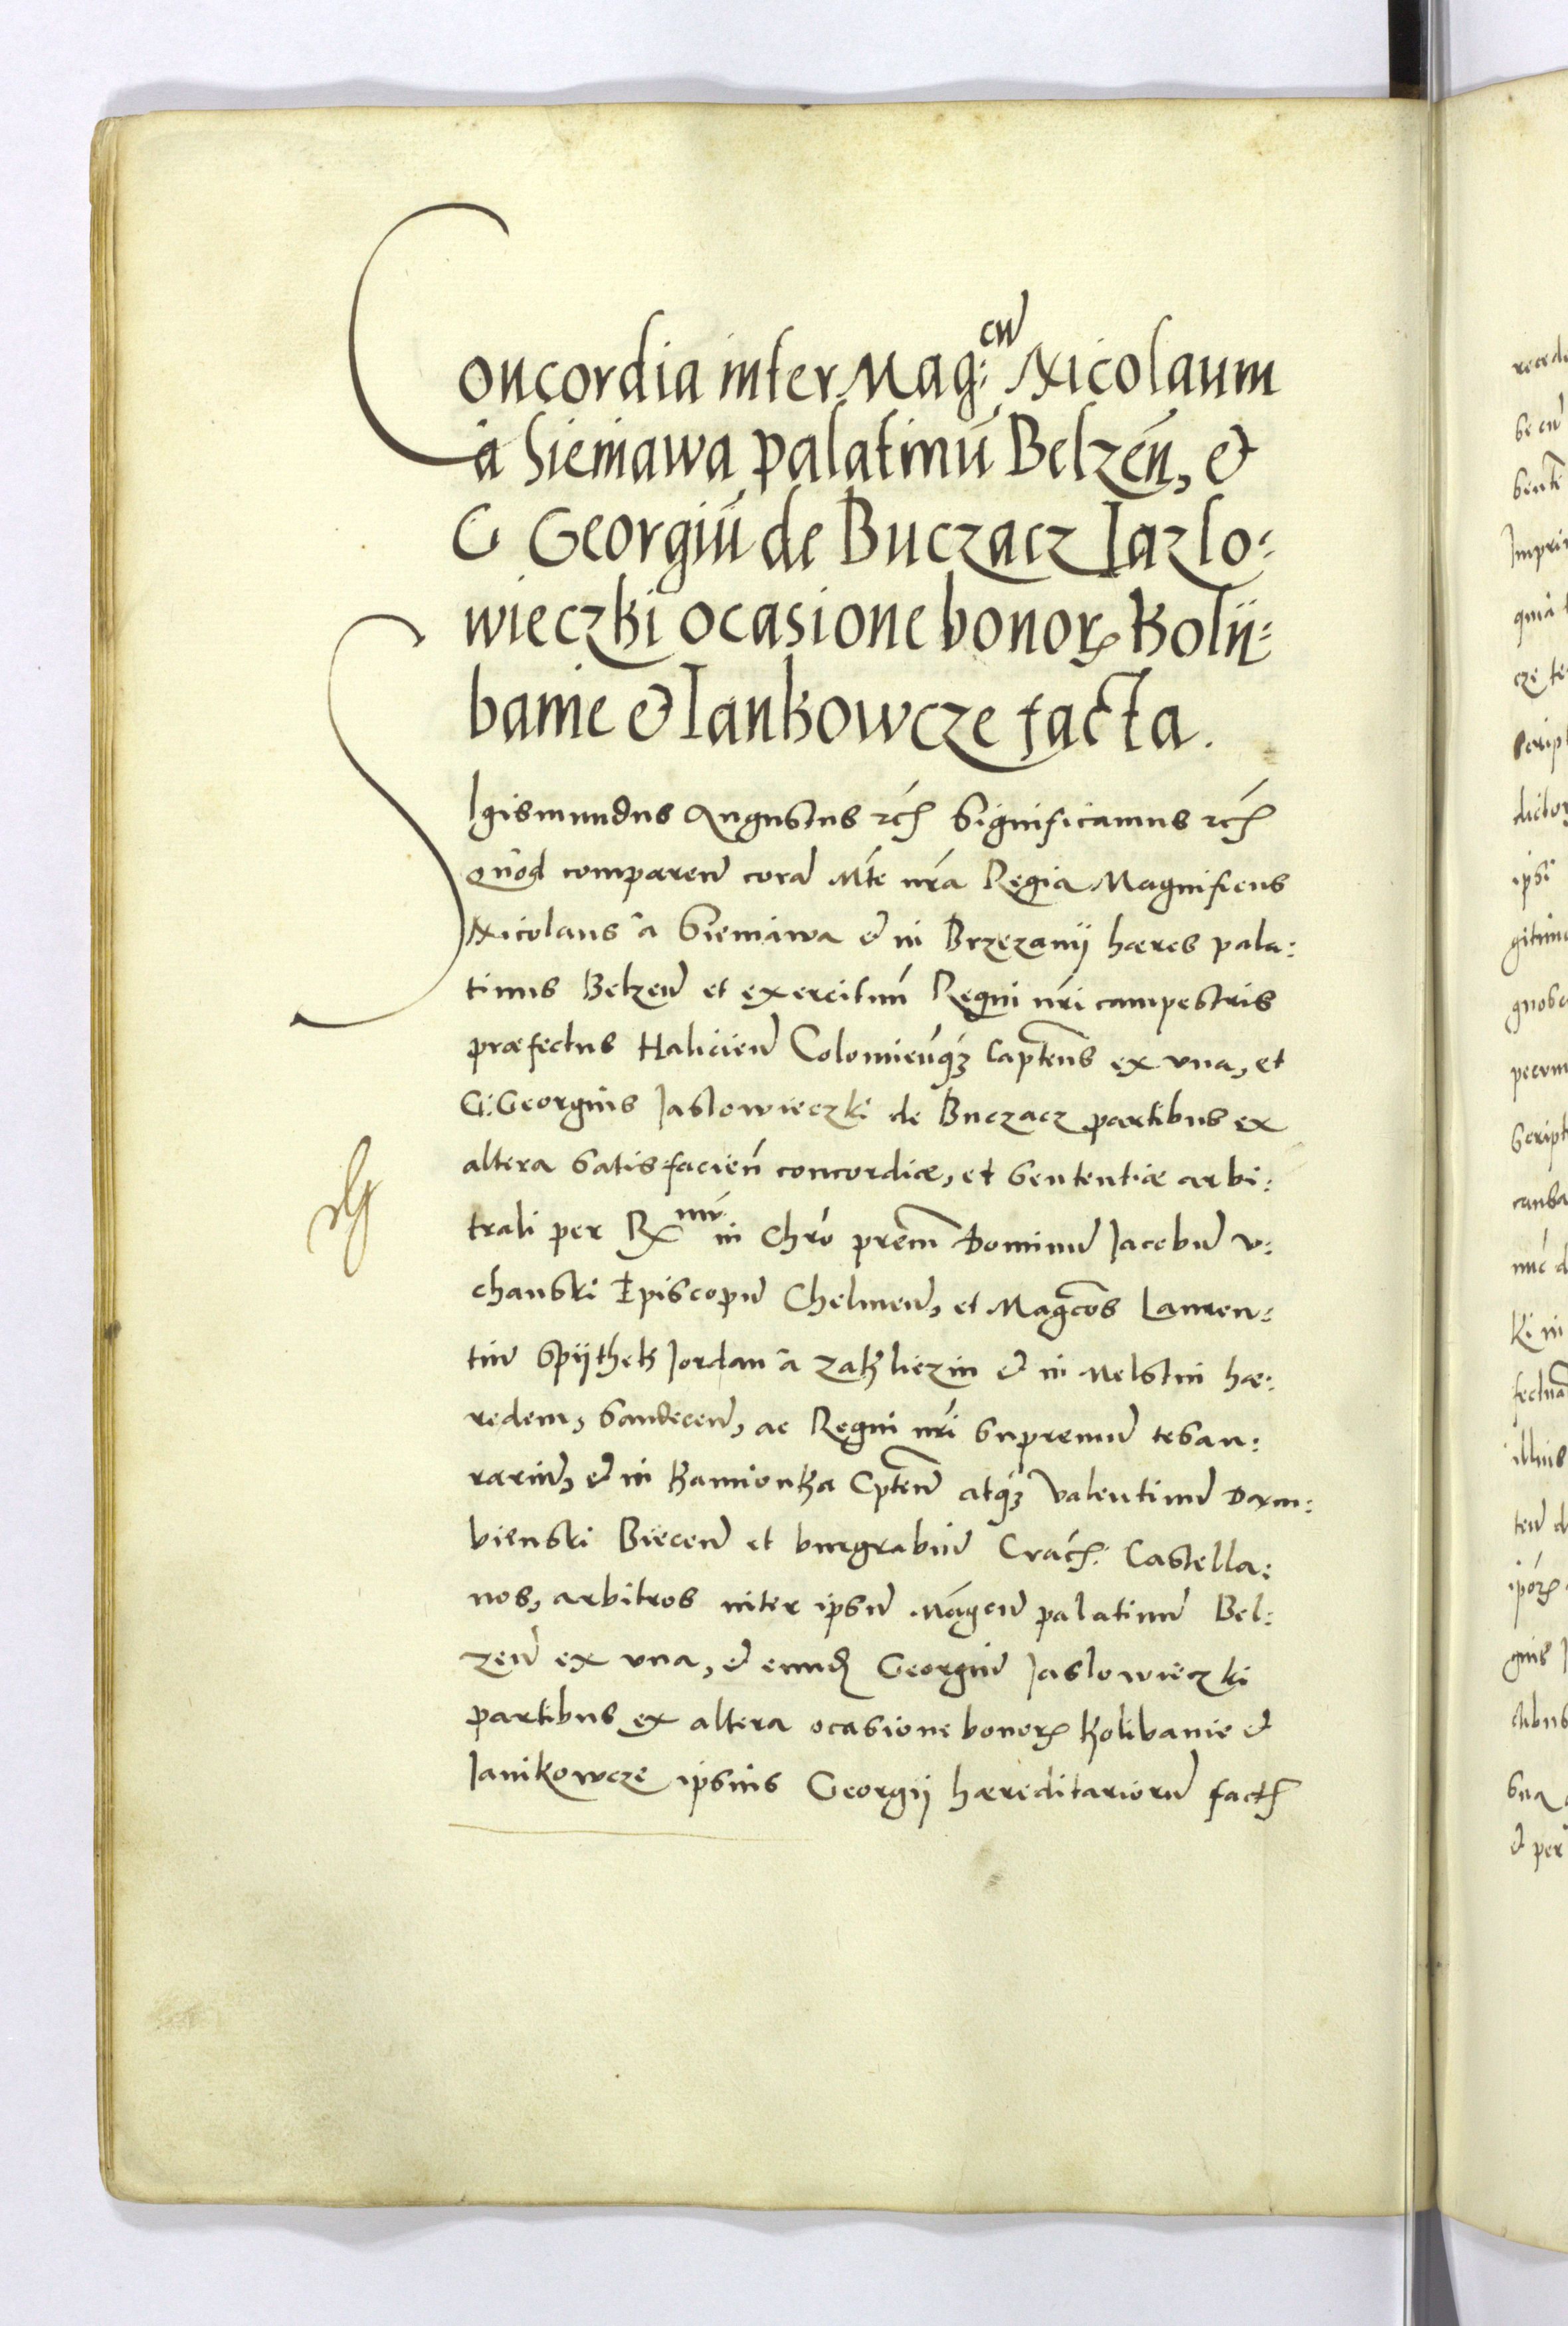 Concordia inter Mag:cū Nicolaum
à Sieniawa palatinū Belzeń, et
G Georgiū de Buczacz Iazlo:
wieczki ocasione bonorꝝ Kolij:
banie et Iankowcze facta.
Sigismundus Augustus etc̄ Significamus etc̄
Quòd comparen̄ corā Mte nr̄a Regia Magnificus
Nicolaus à Sieniawa et in Brzezanij hæres pala:
tinus Belzen̄ et exercituū Regni nr̄i campestris
præfectus Halicien̄ Colomien̄qꝫ Capt̄eus ex vna, et
G: Georgius Jaslowieczki de Buczacz partibus ex
altera satisfacien̄ concordiæ, et sententiæ arbi:
trali per Rmū in Chrō prēm Dominū Jacobū v:
chanski Episcopū Chelmen̄, et Magcōs Lauren:
tiū Spijthek Jordan à Zakliczin et in Melstin hæ:
redem, Sandecen̄, ac Regni nr̄i supremū tesau:
rariū, et in Kamionka Cpt̄eū atqꝫ Valentinū Dæm:
bienski Biecen̄ et burgrabiū Crac̄: Castella:
nos, arbitros inter ipsū Māgcū palatinū Bel:
zen̄ ex vna, et eundē Georgiū Jaslowieczki
partibus ex altera ocasione bonorꝝ Kolibanie et
Janikowcze ipsius Georgij hæreditariorū fact̄